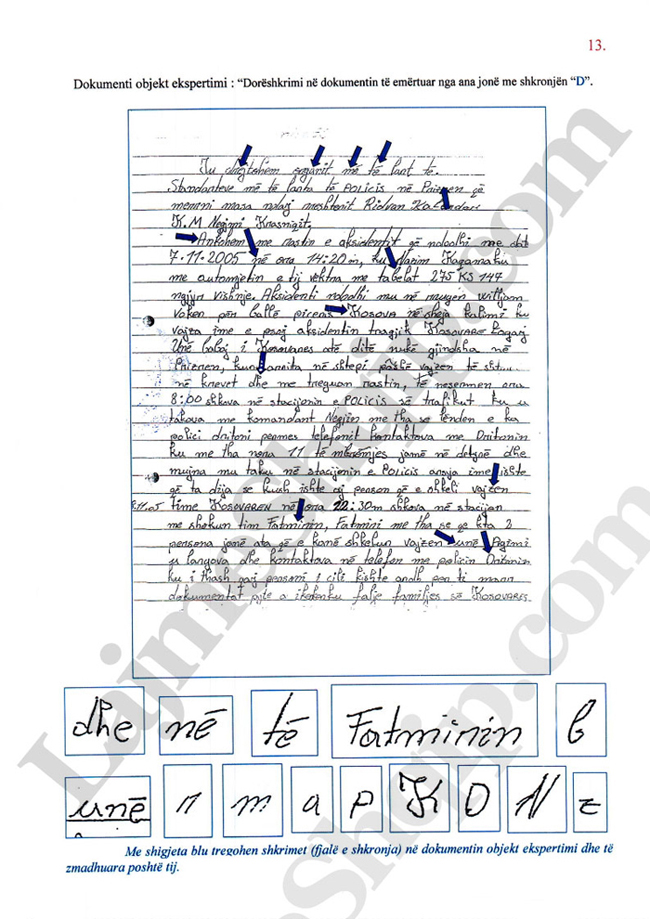 13.
Dokumenti objekt ekspertimi : “Dorëshkrimi në dokumentin të emërtuar nga ana jonë me shkronjën “D”.
Ju drejtohem organit më të lart të
Standarteve më të larta të POLICIS në Prizren që
merrni masa ndaj mreshterit Ridvan
K.M Negjmi Krasniqit.
Ankohem me rastin e aksidentit që ndodhi me dt
7.11.2005 në ora 14:20 m, ku Nazim Kagamaku
me automjetin e tij vektra me tabelat 275 KS 147
ngjyr vishnje. Aksidenti ndodhi mu në rrugen William
Voken përballë piceris KOSOVA në sheja kalimi ku
vajza ime e psoj aksidentin tragjik KOSOVARE
Unë babaj i Kosovares atë ditë nukë gjindsha në
Prizren, kur në shtepi pashë vajzen të sht...
në krevet dhe me treguan rastin, të nesermen ora
8:00 shkova në stacjonin e POLICIS së trafikut ku u
takova me komandant Negjmin me tha se lënden e ka
polici dritoni permes telefonit kontaktova me Dritonin
ku me tha nga 11 të mbrëmjes janë në detyrë dhe
mujna mu taku në stacjonin e POLICIS ime ishte
që ta dija se kush ishte aj person që e shkeli vajzen
8.11.05 time KOSOVAREN në ora 22:30m shkova në stacjon
me shokun tim Fatminin, Fatmini me tha se qe kta 2
persona janë ata që e kanë shkelun vajzen unë Agimi
u lanqova dhe kontaktova në telefon me policin Dritonin
ku i thash personi i cili kishte ardh per ti marr
dokumentat falje familjes së KOSOVARES
dhe në të Fatminin b
unë n m a p K D N z
Me shigjeta blu tregohen shkrimet (fjalë e shkronja) në dokumentin objekt ekspertimi dhe të
zmadhuara poshtë tij.
LajmeShqip.com